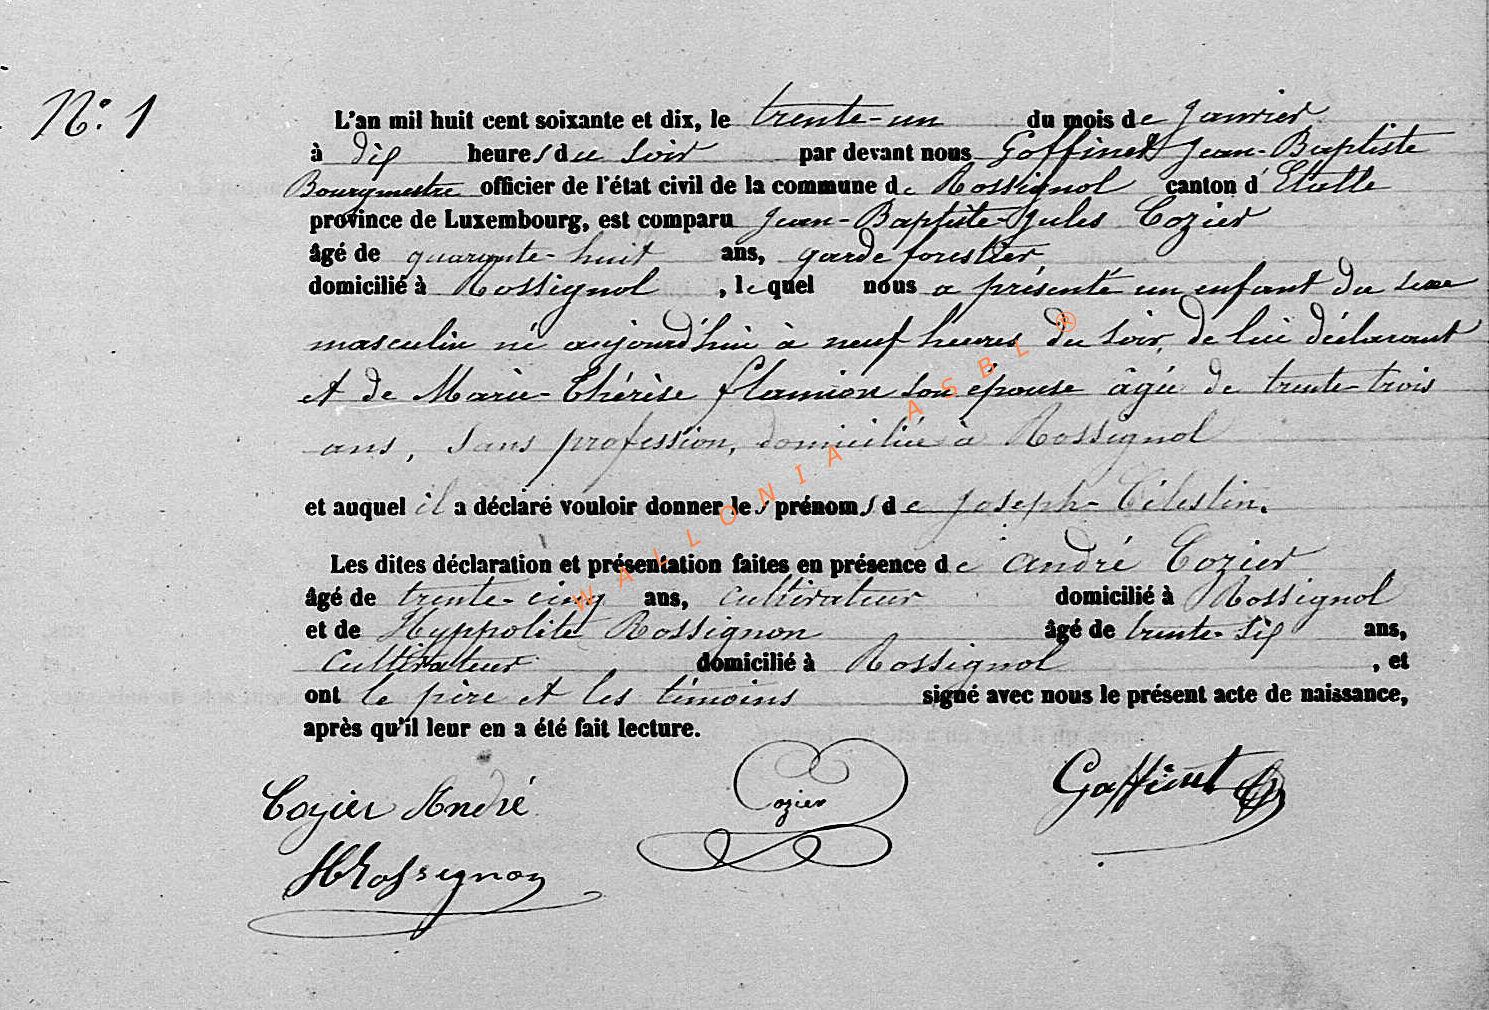 N° 1
L'an mil huit cent soixante et dix, le trente-un du mois de Janvier
à dix heures du soir par devant nous Goffinet Jean-Baptiste
Bourgmestre officier de l'état civil de la commune de Rossignol canton d'Etalle
province de Luxembourg, est comparu Jean-Baptiste-Jules Cozier
âgé de quarante-huit ans, garde forestier,
domicilié à Rossignol, lequel nous a présenté un enfant du sexe
masculin né aujourd'hui à neuf heures du soir, de lui déclarant
et de Marie-Thérèse Flamion son épouse âgée de trente-trois
ans, sans profession, domiciliée à Rossignol
et auquel il a déclaré vouloir donner les prénoms de Joseph-Célestin.
Les dites déclaration et présentation faites en présence de André Cozier
âgé de trente-cinq ans, cultivateur domicilié à Rossignol
et de Hyppolite Rossignon âgé de trente-six ans,
cultivateur domicilié à Rossignol, et
ont le père et les témoins signé avec nous le présent acte de naissance,
après qu'il leur en a été fait lecture.
Cozier André Cozier Goffinet
HRossignon
WALLONIA ASBL ®